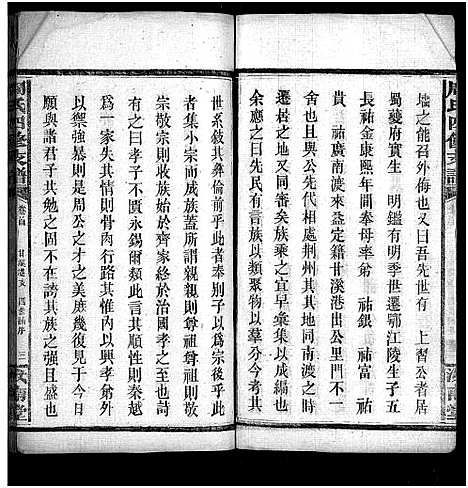 墻之能召外侮也又曰吾先世有 上習公者居
蜀夔府實生 明鑑有明季世遷鄂江陵生子五
長祐金康熙年奉母孝 祐銀 祐富 祐
貴 祐廣南渡來益定籍甘溪港出公里門不一
舍也其先世代相處荆州其其地同南渡之時
遷居之地又同等宥族乘之宜早彙集以成編也
余應之曰先民有言族以類聚物以羣分其
世系叙其彝倫前乎此者奉別子以爲宗後乎此
者集小宗而成族皆所謂親親則尊祖尊祖則
敬宗敬宗則收族始於齊家終於治國孝之至也詩
有之曰孝子不匱永錫爾類此言其順性則秦越
爲一家失其情則骨肉行路其惟内以興孝外
以禦強暴則是周公之才之美庶幾復見于今日
願與諸君子共勉之固不在誇其族之强且盛也
周氏四修支譜
卷首
三
汝南堂